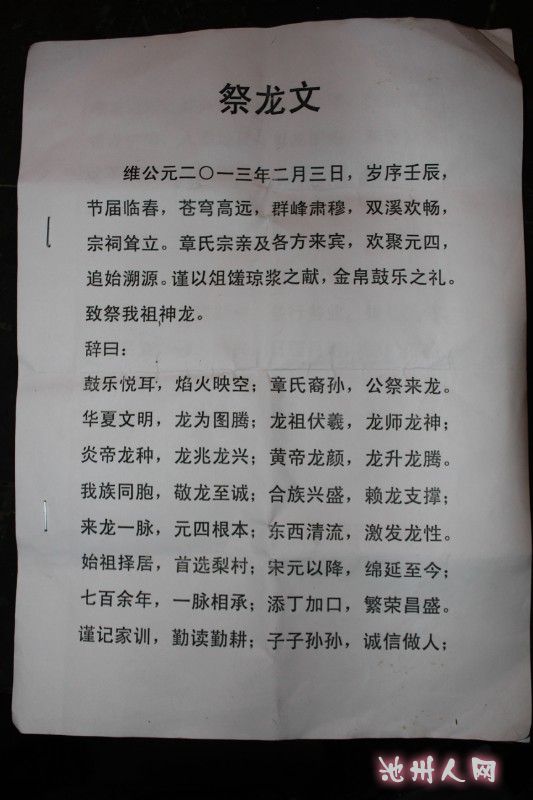 祭龙文
维公元二〇一三年二月三日，岁序壬辰，
节届临春，苍穹高远，群峰肃穆，双溪欢畅，
宗祠耸立。章氏宗亲及各方来宾，欢聚元四，
追始溯源。谨以俎馐琼浆之献，金帛鼓乐之礼。
致祭我祖神龙。
辞曰：
鼓乐悦耳，焰火映空；章氏裔孙，公祭来龙。
华夏文明，龙为图腾；龙祖伏羲，龙师龙神；
炎帝龙种，龙兆龙兴；黄帝龙颜，龙升龙腾。
我族同胞，敬龙至诚；合族兴盛，赖龙支撑；
来龙一脉，元四根本；东西清流，激发龙性。
始祖择居，首选梨村；宋元以降，绵延至今；
七百余年，一脉相承；添丁加口，繁荣昌盛。
谨记家训，勤读勤耕；子子孙孙，诚信做人；
池州人网